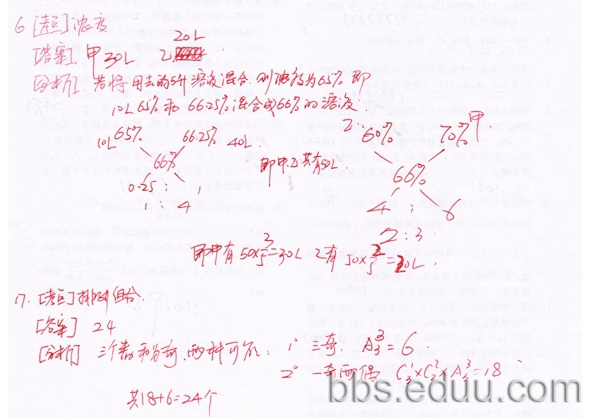 6 [考点] 浓度
[答案] 甲30L 乙20L
[分析] 若将用去的5升溶液混合,则浓度为65%,即
10L 65%和66.25%混合成66%的溶液.
10L 65% 66.25% 40L
66%
0.25 : 1
1 : 4
即甲乙共有50L
乙: 60% 70% 甲
66%
4 : 6
2 : 3
即甲有 50×3/5=30L 乙有 50×2/5=20L.
7. [考点] 排列组合.
[答案] 24
[分析] 三个数和为奇,两种可能: 1° 三奇. A³₃=6.
2° 一奇两偶 C¹₃×C²₂×A³₃=18
共18+6=24个
bbs.eduu.com